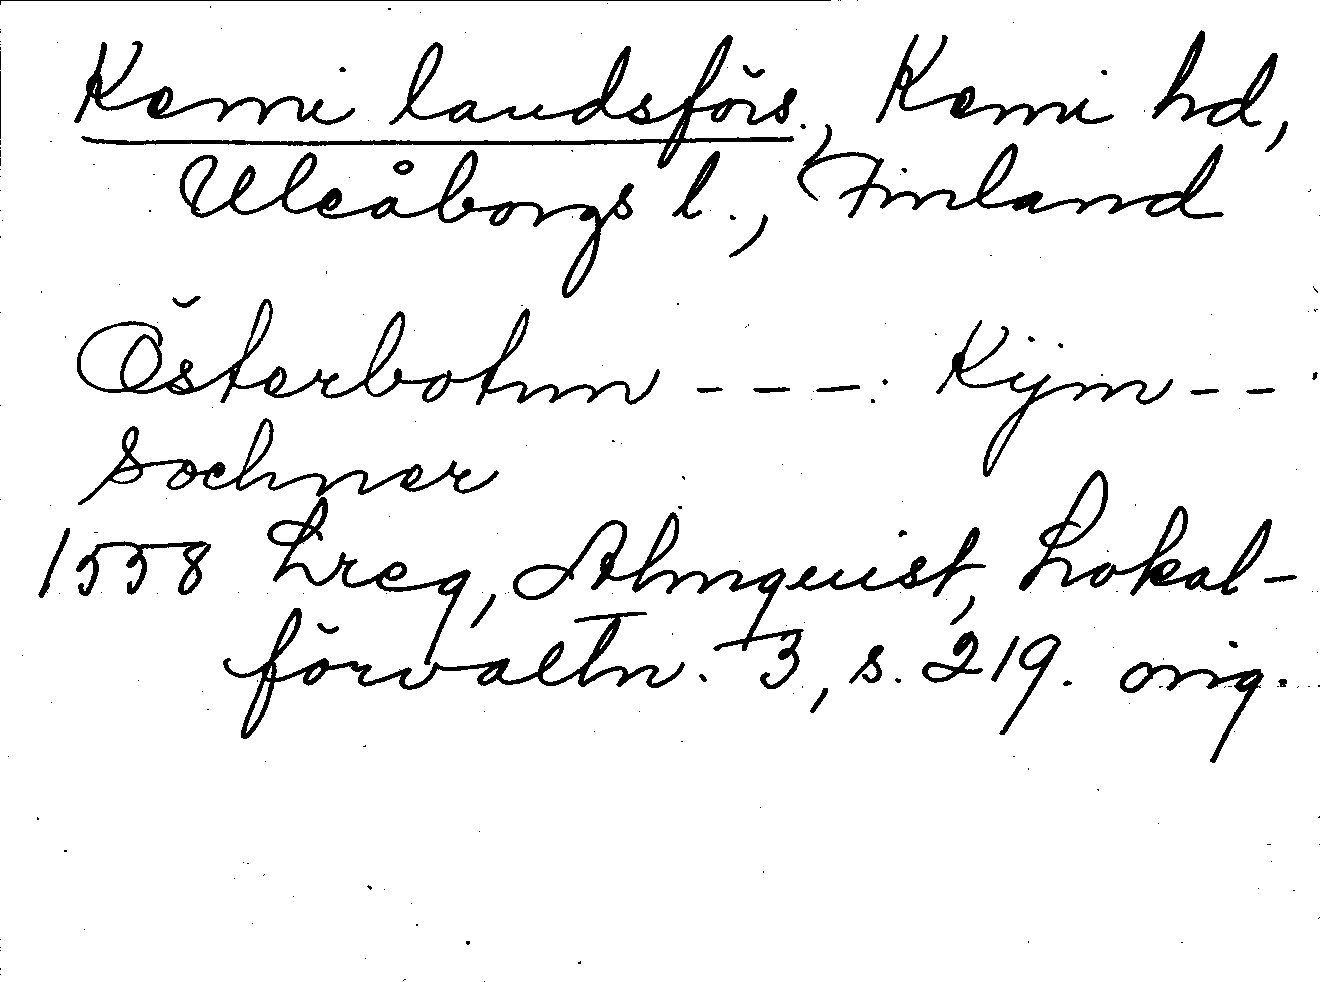 Kemi landsförs., Kemi hd,
Uleåborgs l., Finland
Österbotnn - - - . Kÿm - -
sochner
1558 Lreg, Almquist, Lokal-
förvaltn. 3, s. 219. orig.